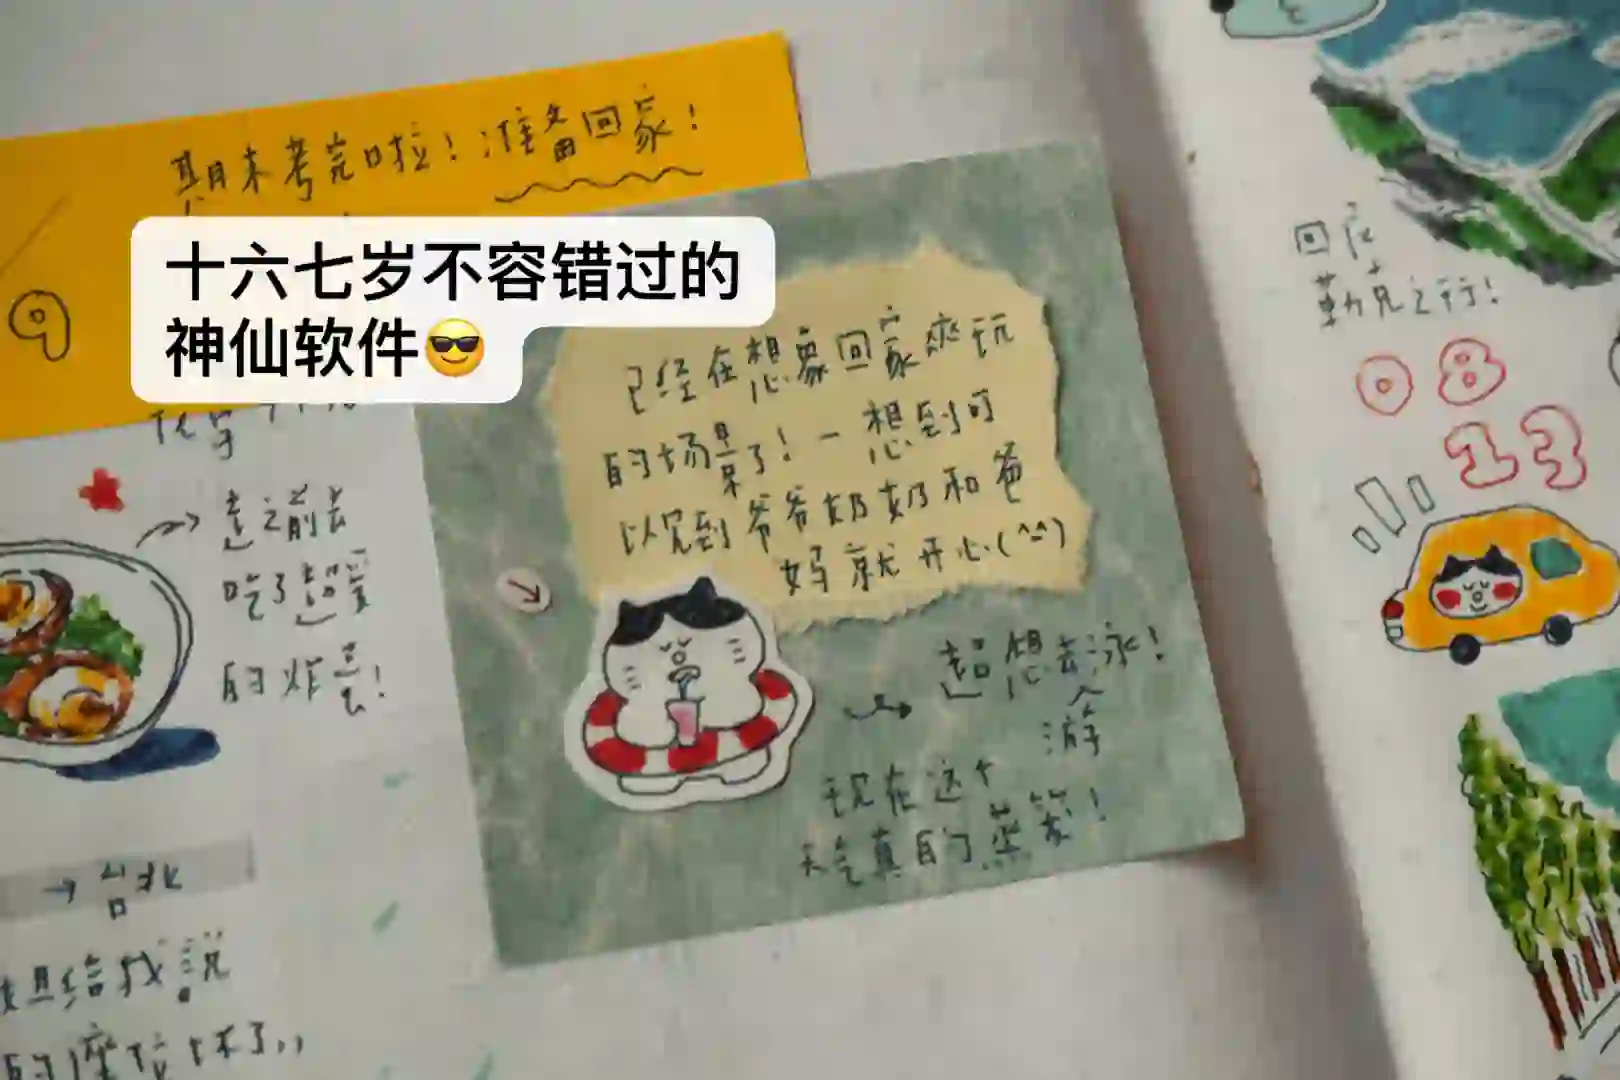 期末考完啦！准备回家！
十六七岁不容错过的
神仙软件😎
9
已经在想象回家来玩
的场景了！一想到可
以见到爷爷奶奶和爸
妈就开心(^-^)
走之前去
吃了超爱
的炸蛋！
超想去游泳！
现在这个
天气真的蒸笼！
→台北
给我说
的座位
回
之行！
08
13